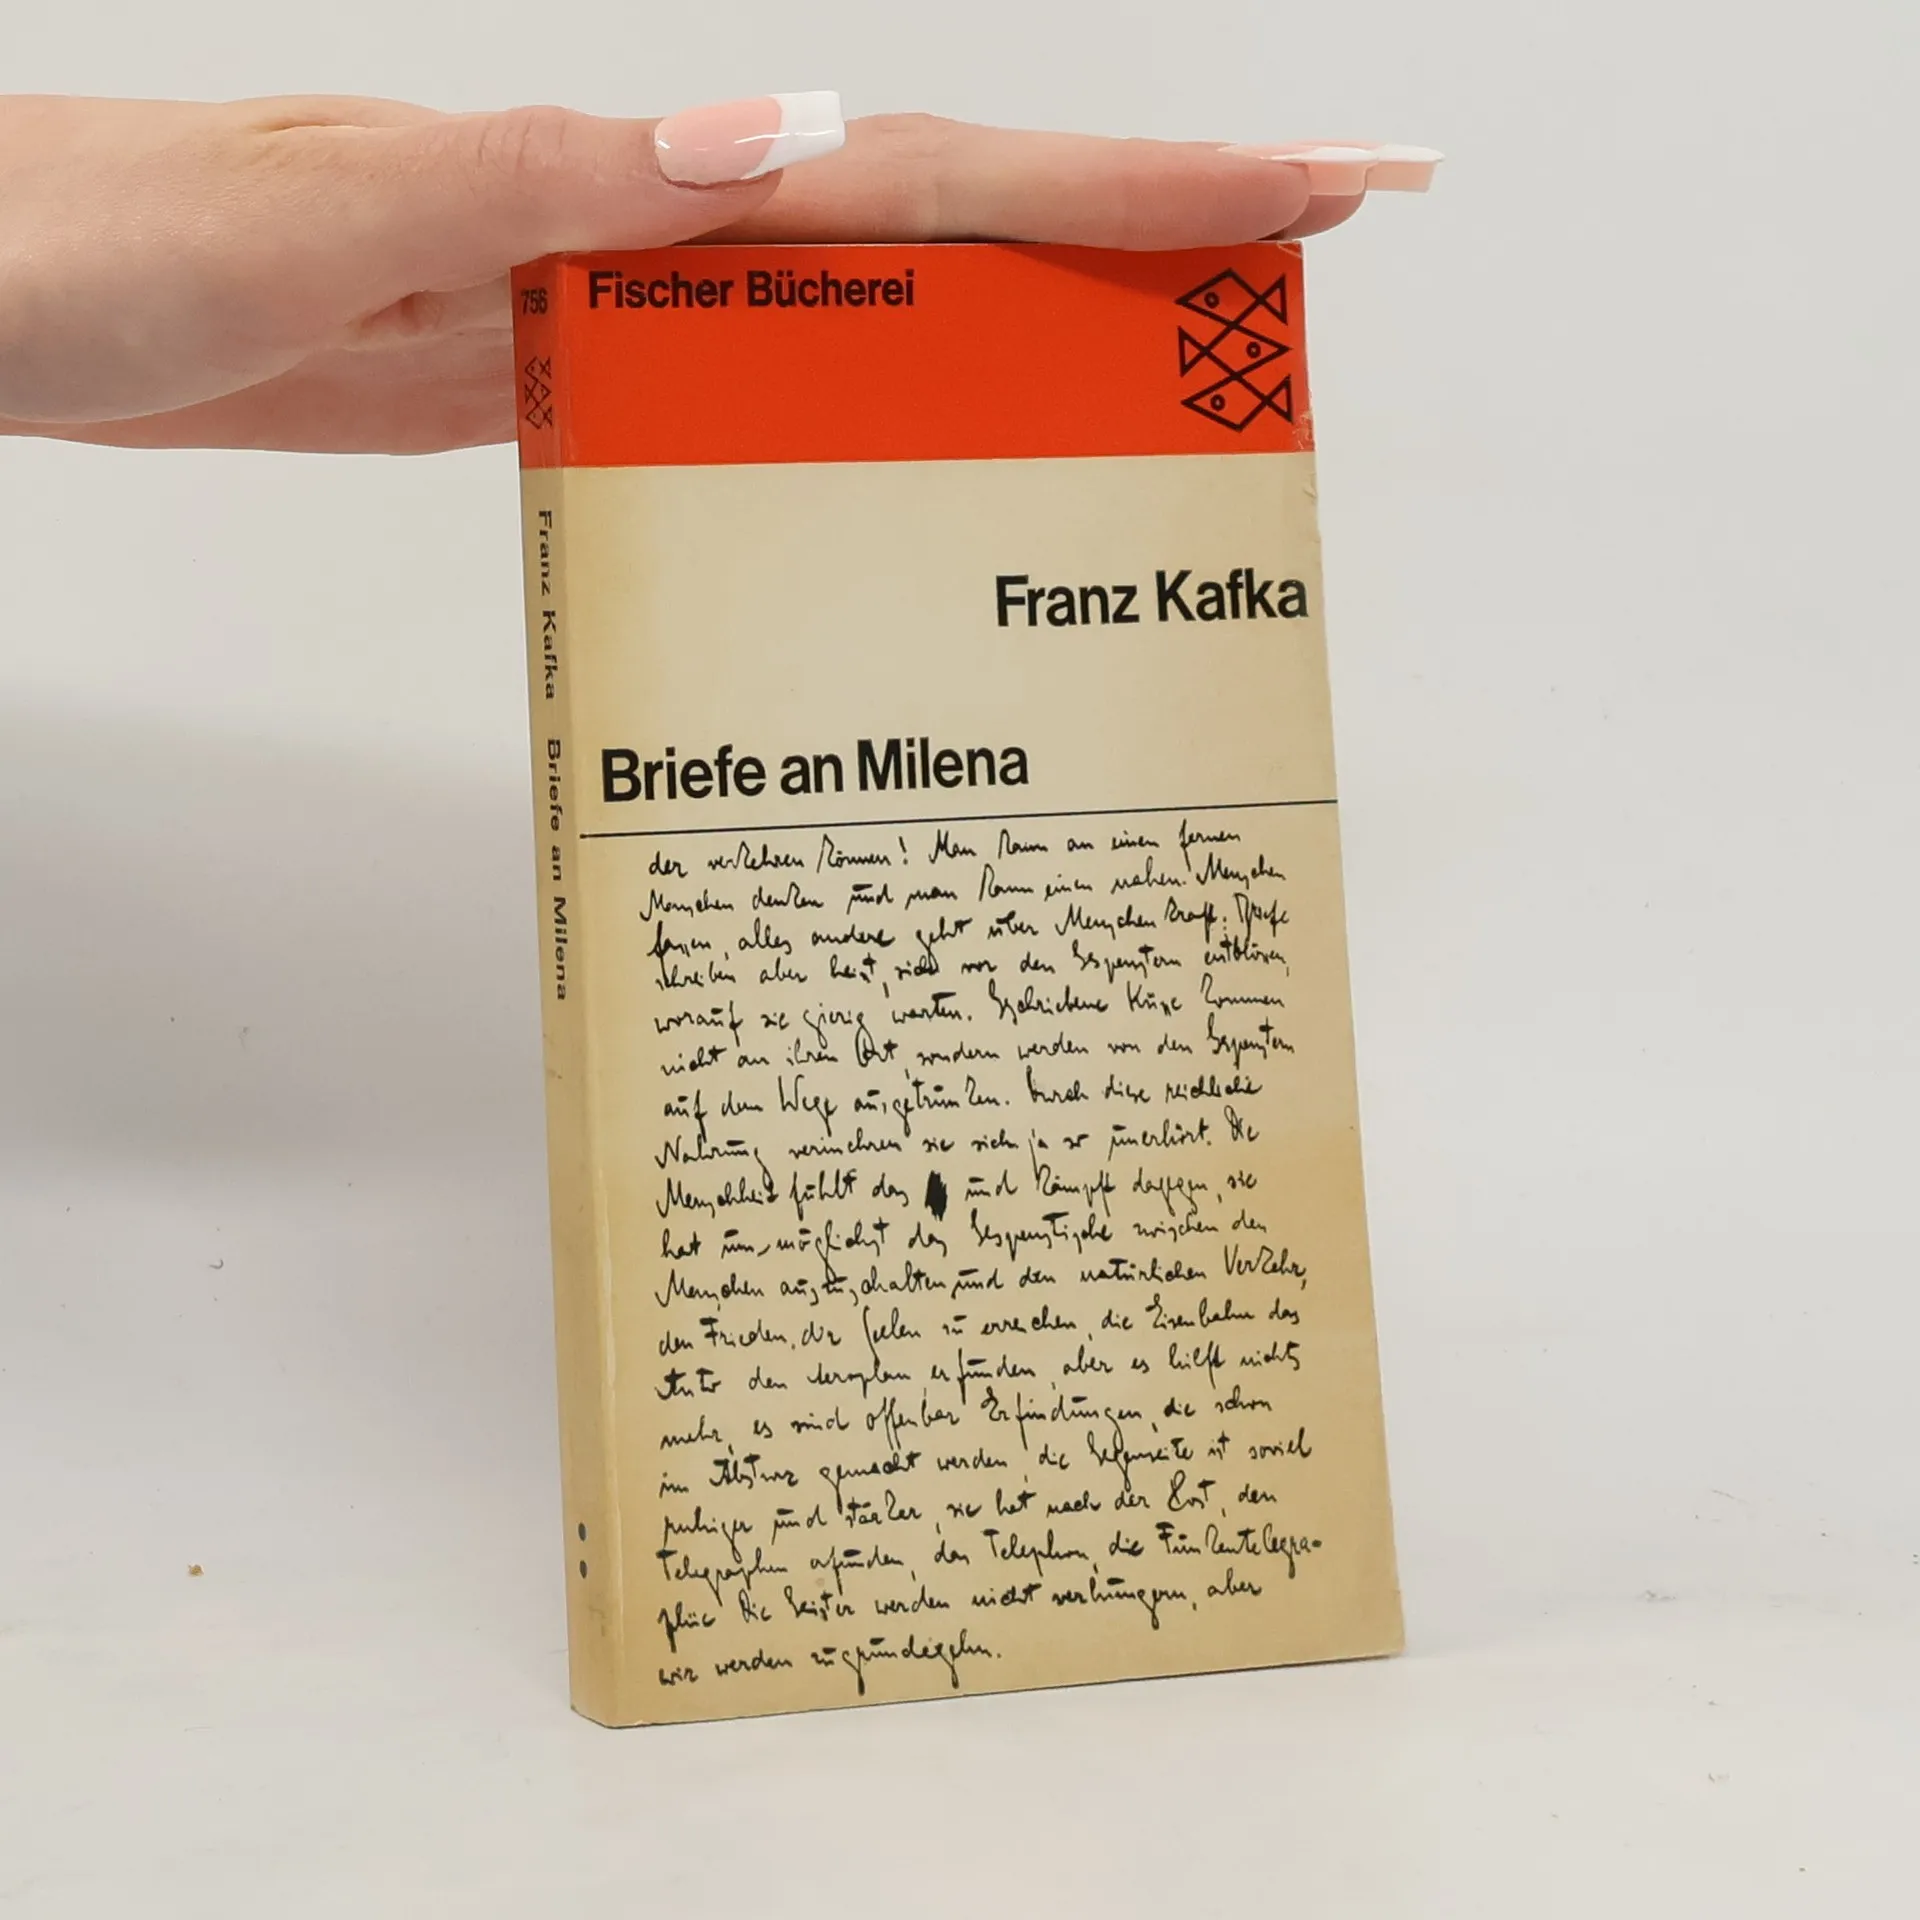 Fischer Bücherei
756
Franz Kafka
Briefe an Milena
Franz Kafka Briefe an Milena
der verkehren können! Man kann an einen fernen
Menschen denken und man kann einen nahen Menschen
fassen, alles andere geht über Menschenkraft. Briefe
schreiben aber heisst, sich vor den Gespenstern entblössen,
worauf sie gierig warten. Geschriebene Küsse kommen
nicht an ihren Ort, sondern werden von den Gespenstern
auf dem Wege ausgetrunken. Durch diese reichliche
Nahrung vermehren sie sich ja so unerhört. Die
Menschheit fühlt das und kämpft dagegen, sie
hat um, möglichst das Gespenstische zwischen den
Menschen auszuschalten, und den natürlichen Verkehr,
den Frieden der Seelen zu erreichen, die Eisenbahn das
Auto den Aeroplan erfunden, aber es hilft nichts
mehr, es sind offenbar Erfindungen, die schon
im Absturz gemacht werden, die Gegenseite ist soviel
ruhiger und stärker, sie hat nach der Post, den
Telegraphen erfunden, das Telephon, die Funkentelegra-
phie Die Geister werden nicht verhungern, aber
wir werden zugrundegehn.